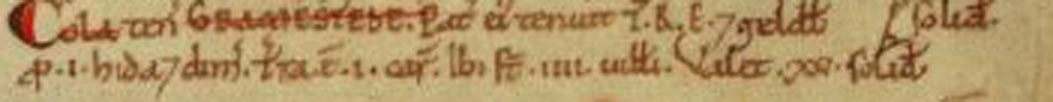 Cola ten GRAMESTEDE. Pat̃ ei tenuit T.R.E. ⁊ geldb̃ ſolid.
ꝓ .i. hida ⁊ dim̃. Tr̃a .ẽ. .i. car̃. Ibi ſt̃ .iiii. uilli. Valet .xx. ſolid